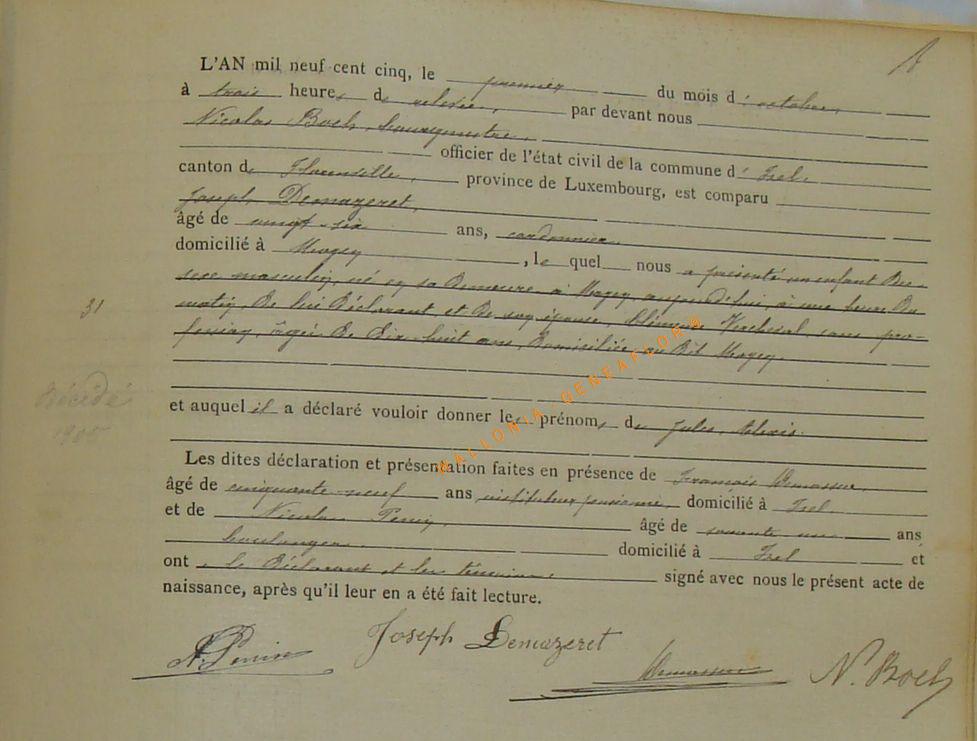 L'AN mil neuf cent cinq, le premier du mois d'octobre,
à trois heures de relevée, par devant nous
Nicolas Boch, bourgmestre,
officier de l'état civil de la commune d'Izel,
canton de Florenville, province de Luxembourg, est comparu
Joseph Demazeret,
âgé de vingt-six ans, cordonnier
domicilié à Moyen, lequel nous a présenté un enfant du
sexe masculin, né en sa demeure à Moyen, aujourd'hui, à une heure du
matin, de lui déclarant et de son épouse, sans pro-
fession, âgée de dix-huit ans, domiciliée au dit Moyen.
31
Décédé
1905
et auquel il a déclaré vouloir donner les prénoms de Jules, Alexis.
Les dites déclaration et présentation faites en présence de François
âgé de cinquante-neuf ans instituteur pensionné domicilié à Izel
et de Nicolas âgé de soixante un ans
boulanger domicilié à Izel et
ont le déclarant et les témoins signé avec nous le présent acte de
naissance, après qu'il leur en a été fait lecture.
Joseph Demazeret
N. Boch
WALLONIA GENEAFLORE